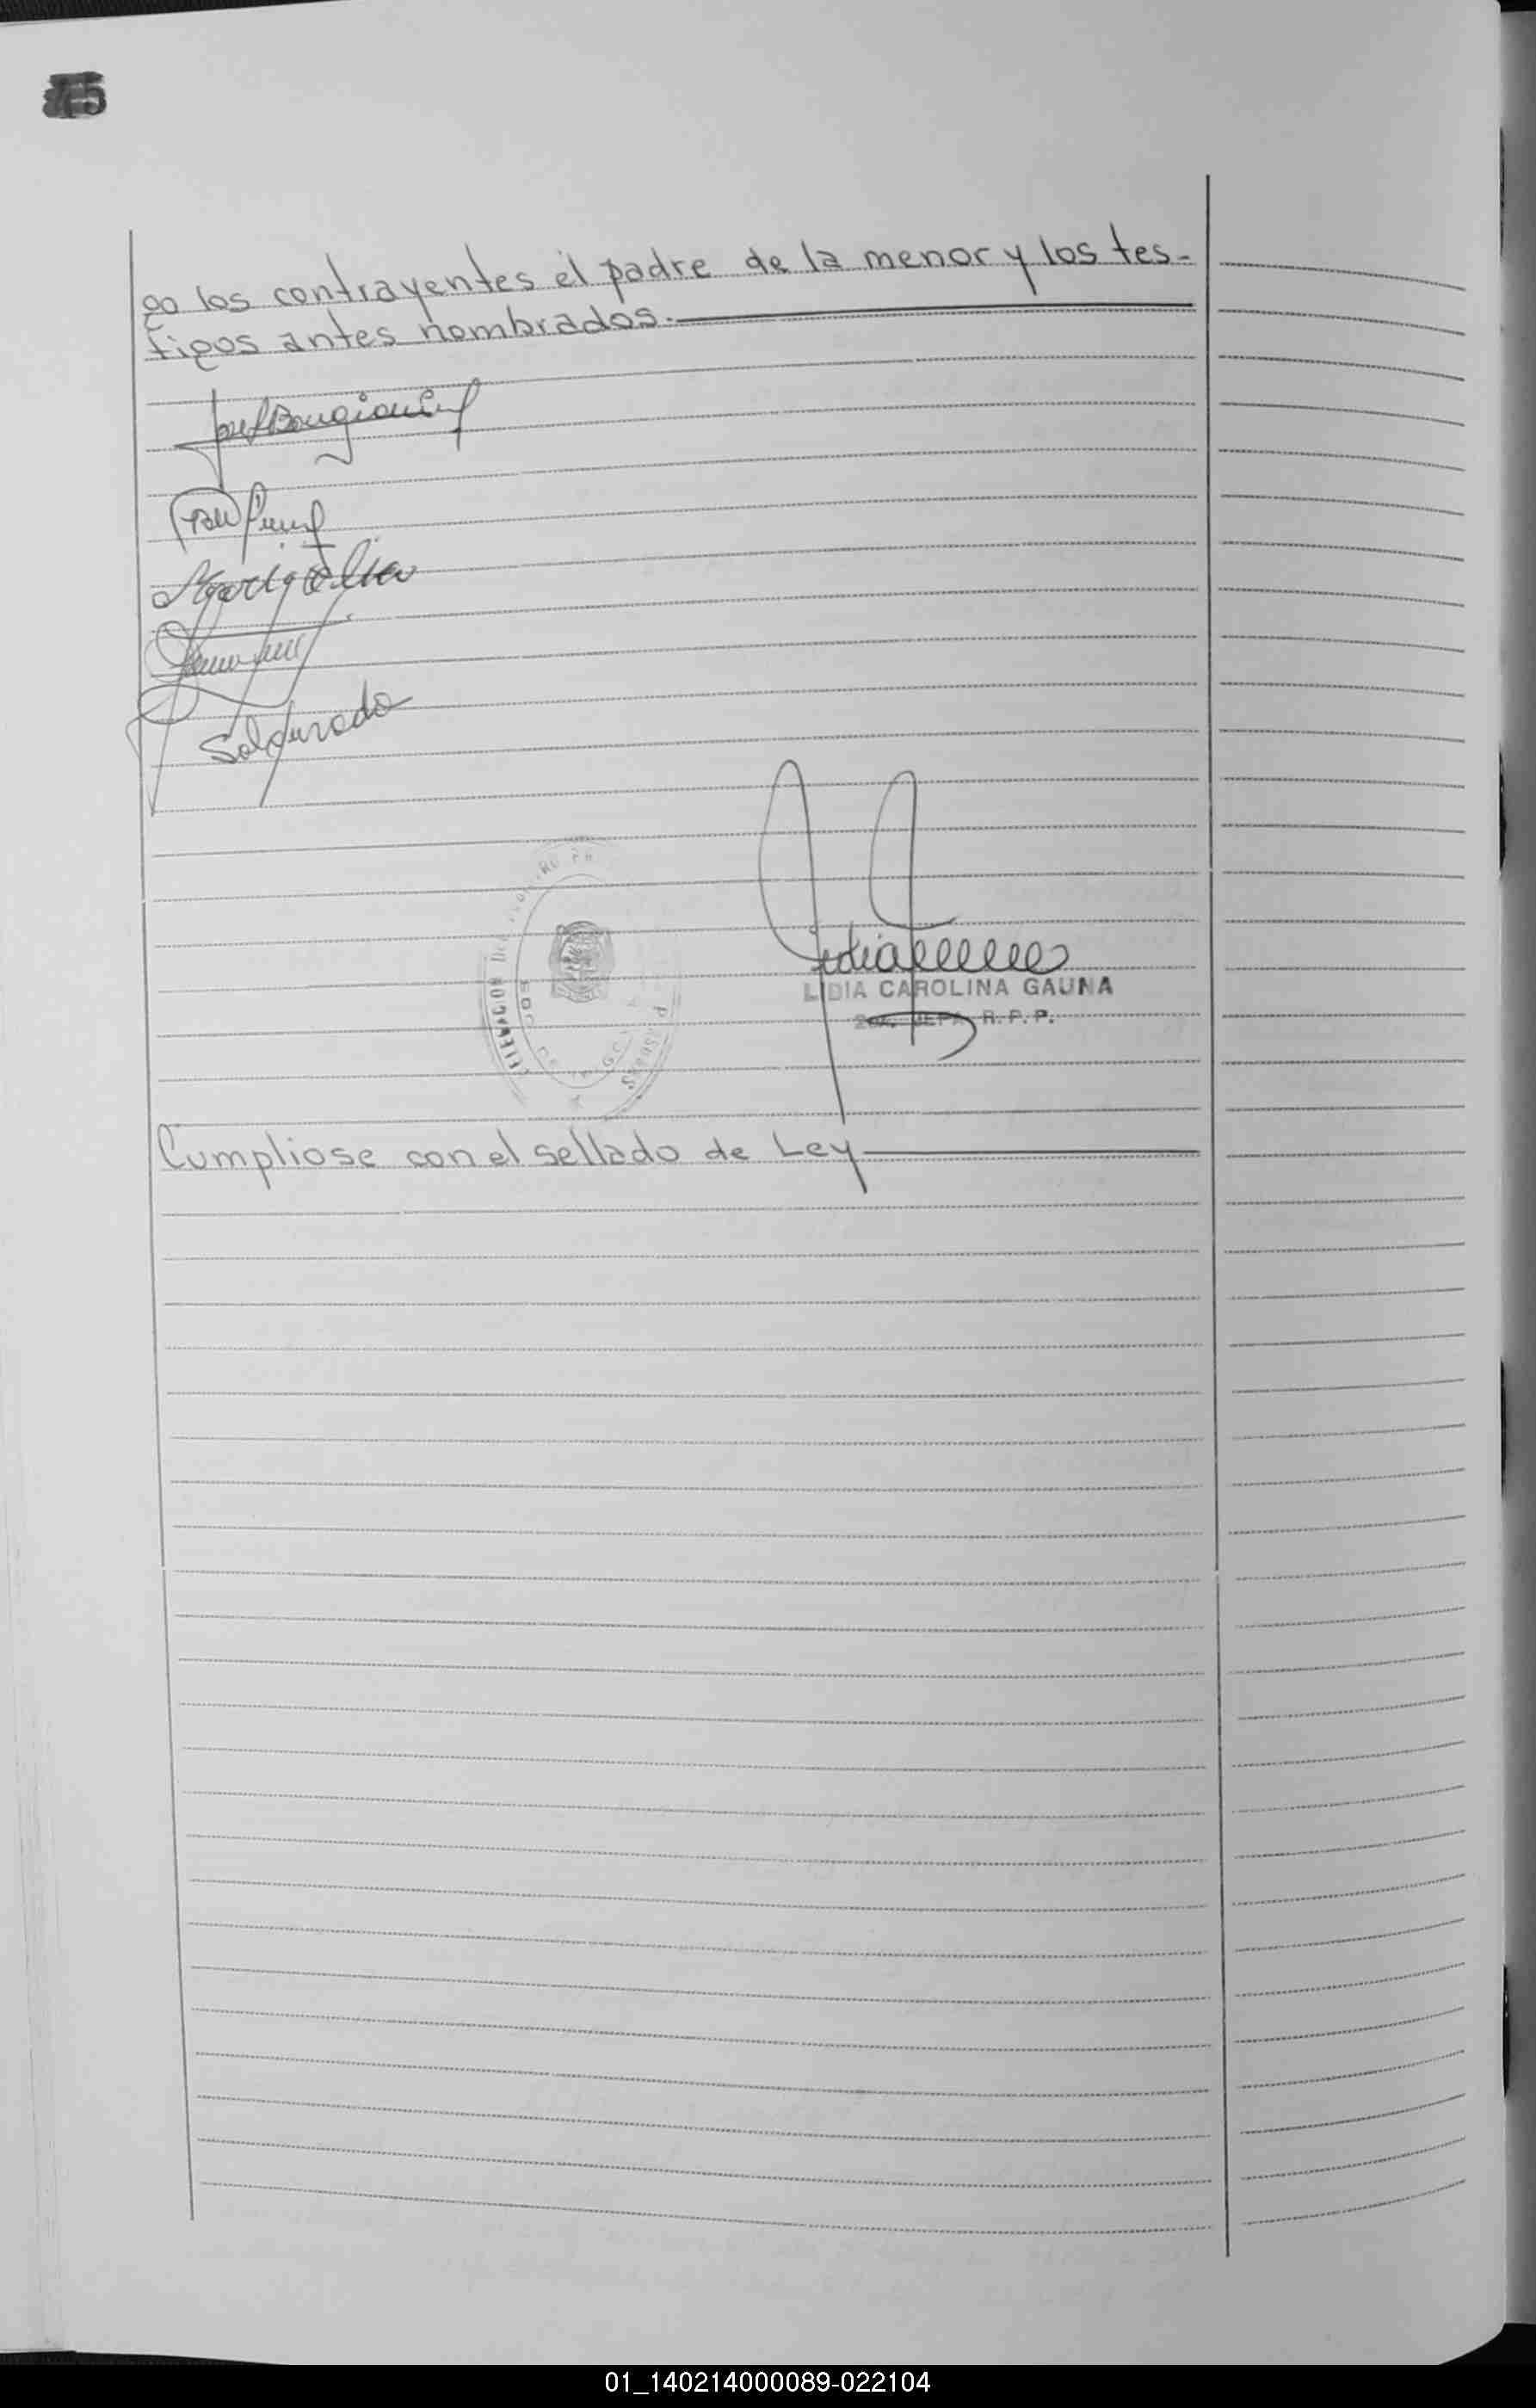 45
go los contrayentes el padre de la menor y los tes-
tigos antes nombrados.
Saldurado
LIDIA CAROLINA GAUNA
R. P. P.
Cumpliose con el sellado de Ley
01_140214000089-022104